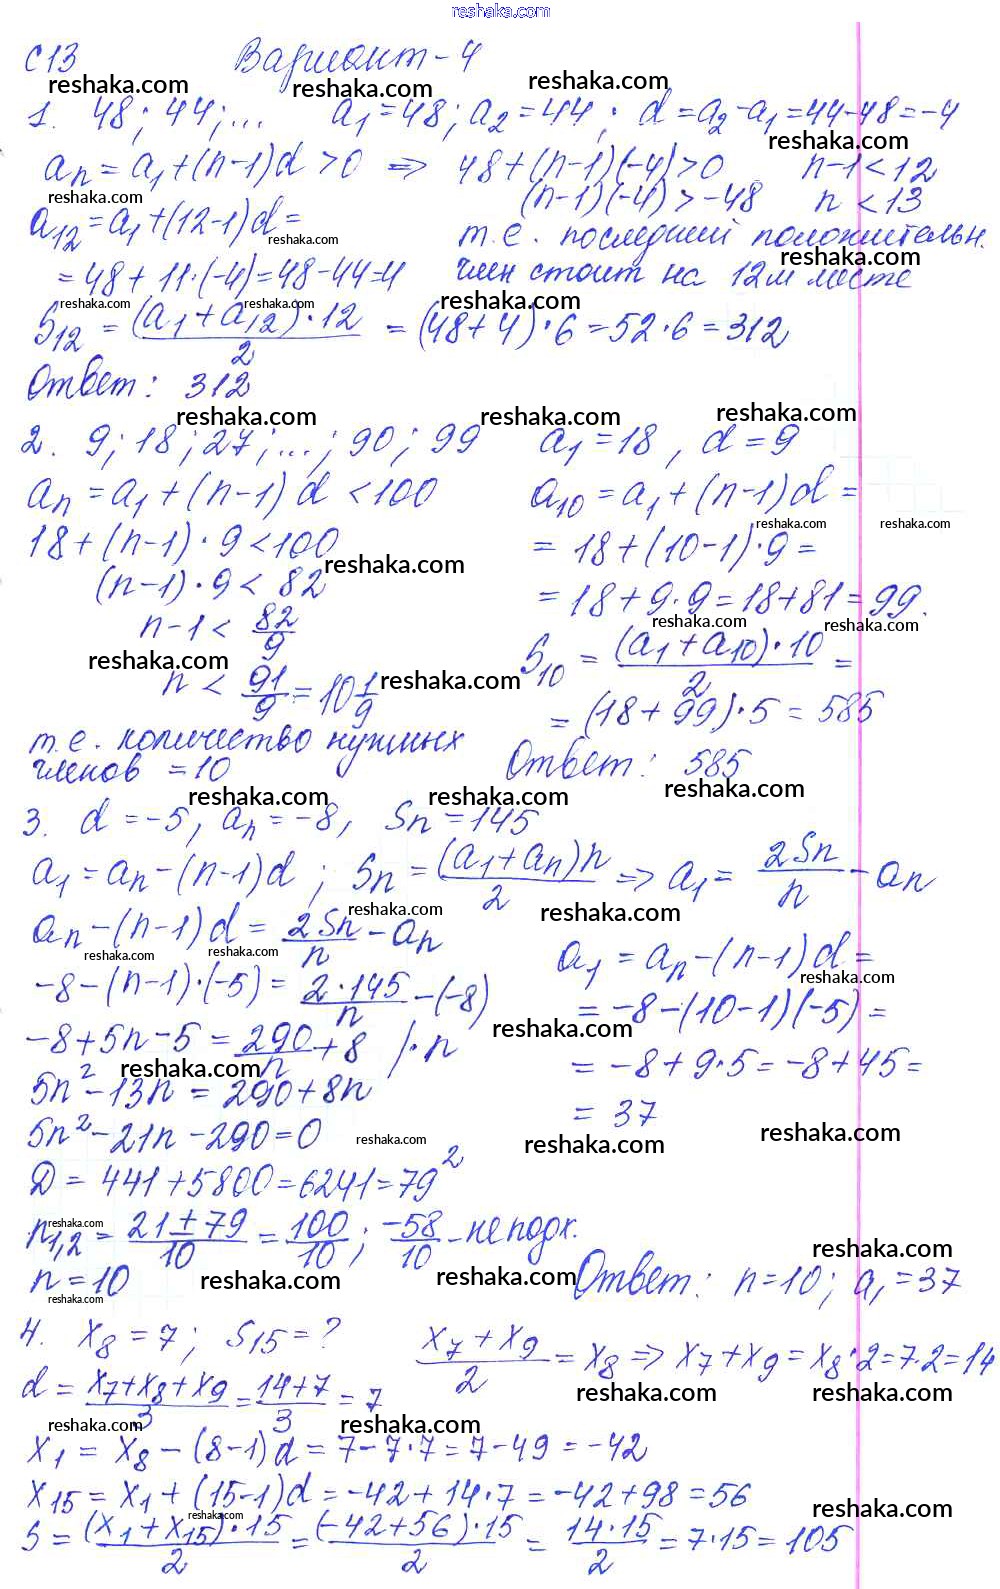 reshaka.com
С13 Вариант-4
1. 48; 44; ... a₁=48; a₂=44; d=a₂-a₁=44-48=-4
aₙ=a₁+(n-1)d>0 => 48+(n-1)(-4)>0 n-1<12
(n-1)(-4)>-48 n<13
a₁₂=a₁+(12-1)d=
т.е. последний положительн.
=48+11·(-4)=48-44=4 член стоит на 12м месте
S₁₂=(a₁+a₁₂)·12/2=(48+4)·6=52·6=312
Ответ: 312
2. 9; 18; 27; ...; 90; 99 a₁=18, d=9
aₙ=a₁+(n-1)d<100 a₁₀=a₁+(n-1)d=
18+(n-1)·9<100 =18+(10-1)·9=
(n-1)·9<82 =18+9·9=18+81=99.
n-1<82/9 S₁₀=(a₁+a₁₀)·10/2=
n<91/9=10 1/9 =(18+99)·5=585
т.е. количество нужных
членов =10 Ответ: 585
3. d=-5, aₙ=-8, Sn=145
a₁=aₙ-(n-1)d; Sₙ=(a₁+aₙ)n/2 => a₁=2Sn/n-an
aₙ-(n-1)d=2Sn/n-aₙ
a₁=aₙ-(n-1)d=
-8-(n-1)·(-5)=2·145/n-(-8)
=-8-(10-1)(-5)=
-8+5n-5=290/n+8 |·n
=-8+9·5=-8+45=
5n²-13n=290+8n
=37
5n²-21n-290=0
D=441+5800=6241=79²
n₁,₂=21±79/10=100/10; -58/10-не подх.
n=10 Ответ: n=10; a₁=37
4. x₈=7; S₁₅=? x₇+x₉/2=x₈=>x₇+x₉=x₈·2=7·2=14
d=x₇+x₈+x₉/3=14+7/3=7
x₁=x₈-(8-1)d=7-7·7=7-49=-42
x₁₅=x₁+(15-1)d=-42+14·7=-42+98=56
S=(x₁+x₁₅)·15/2=(-42+56)·15/2=14·15/2=7·15=105